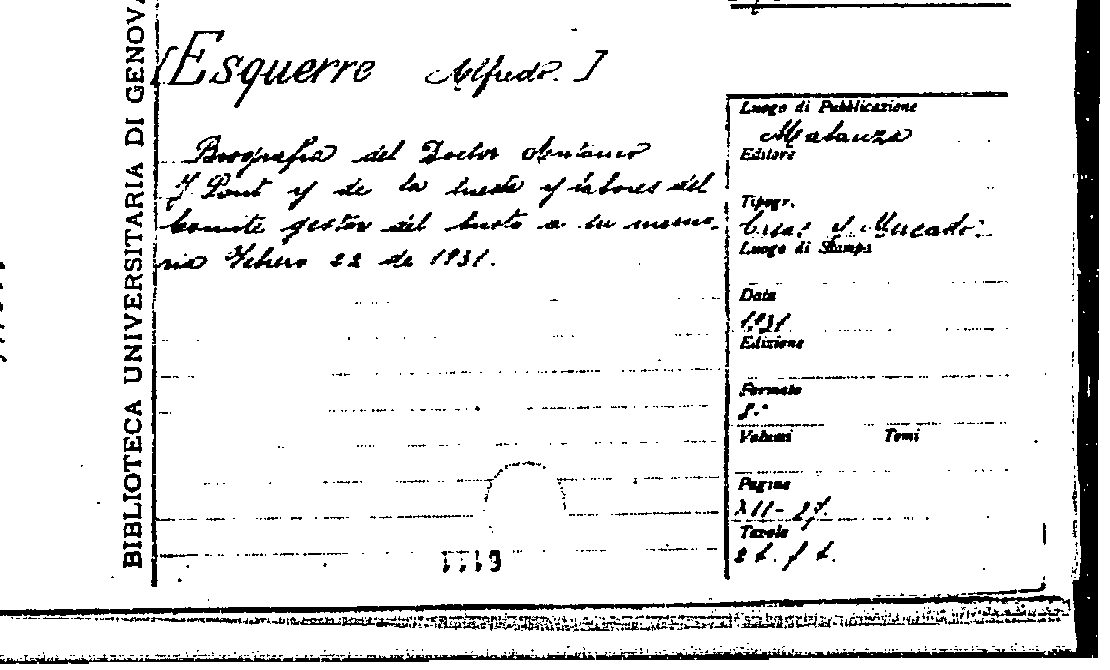 BIBLIOTECA UNIVERSITARIA DI GENOVA
[Esquerre Alfredo.]
Biografia del Doctor Antonio
J. Pont y de la tuesta y labores del
Comité gestor del busto a su memo-
ria Febrero 22 de 1931.
Luogo di Pubblicazione
Matanza
Editore
Tipogr.
y Mercado.
Luogo di Stampa
Data
1931
Edizione
Formato
8.°
Volumi Tomi
Pagine
XII - 27.
Tavole
2 t. f t.